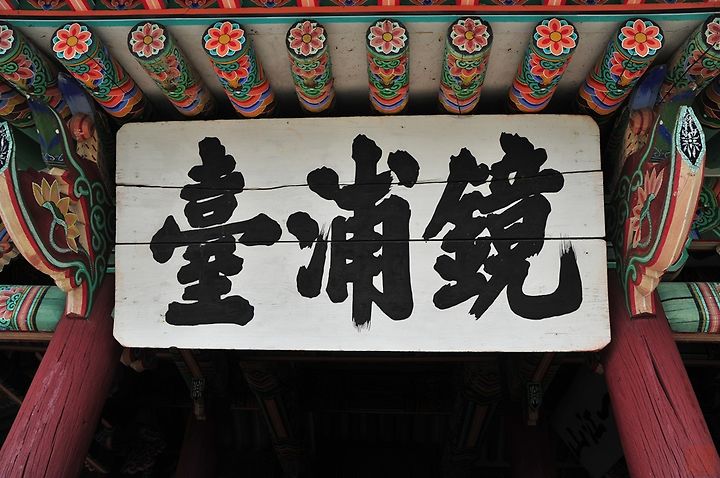 鏡浦臺